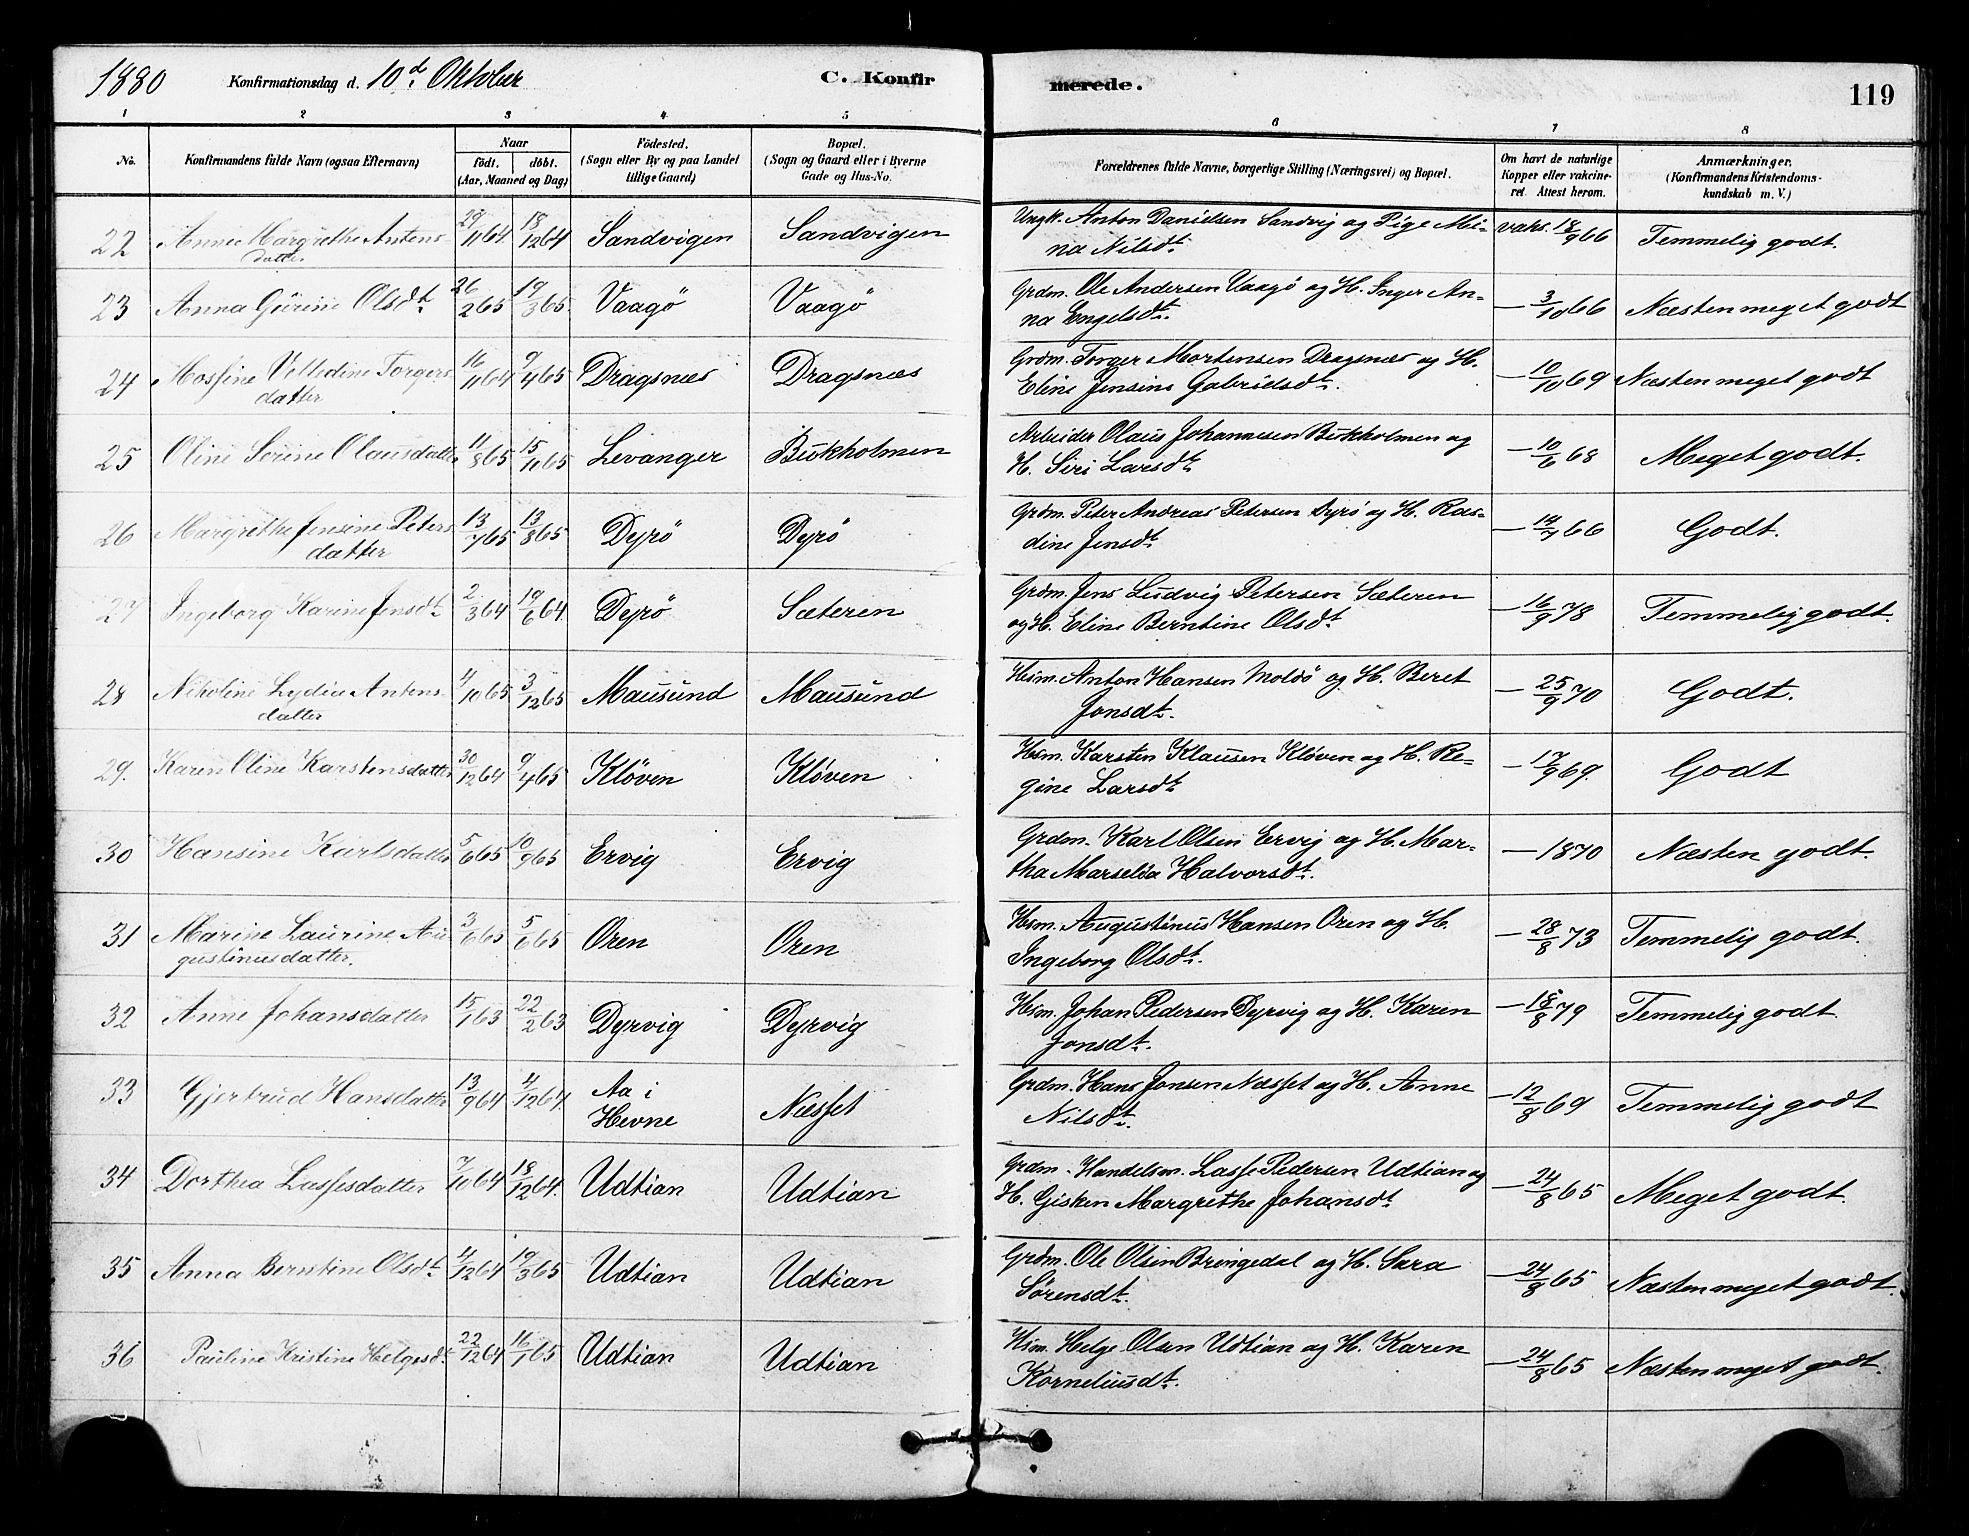 1880 Konfirmationsdag d. 10d. Oktober C. Konfirmerede. 119
1 2 3 4 5 6 7 8
No. Konfirmandens fulde Navn (ogsaa Efternavn) Naar födt. döbt. (Aar, Maaned og Dag) Födested. (Sogn eller By og paa Landet tillige Gaard) Bopæl. (Sogn og Gaard eller i Byerne Gade og Hus-No. Forældrenes fulde Navne, borgerlige Stilling (Næringsvei) og Bopæl. Om havt de naturlige Kopper eller vakcineret. Attest herom. Anmærkninger. (Konfirmandens Kristendomskundskab m. V.)
22 Anne Margrethe Antons 29/11 64. 18/12 64 Sandvigen Sandvigen Ungk. Anton Danielsen Sandvig og Pige Mi- vaks. 18/9 66 Temmelig godt.
datter na Nilsdt.
23 Anna Gurine Olsdt. 26/2 65 19/3 65. Vaagö Vaagö Grdm. Ole Andersen Vaagö og H. Inger An- — 3/10 66 Næsten meget godt
na Engelsdt.
24 Hosfine Velledine Torgers 16/11 64 9/4 65 Dragsnæs Dragsnæs Grdm. Torger Mortensen Dragsnæs og H. — 10/10 69 Næsten meget godt
datter Eline Jensine Gabrielsdt.
25 Oline Serine Olausdatter 4/8 65 15/10 65 Levanger Bukholmen Arbeider Olaus Johannesen Bukholmen og — 10/6 68 Meget godt.
H. Siri Larsdt.
26 Margrethe Jensine Peters 13/7 65 13/8 65 Dyrö Dyrö Grdm. Peter Andreas Petersen Dyrö og H. Ras- — 14/7 66 Godt.
datter dine Jensdt.
27 Ingeborg Karine Jensdt. 2/3 64 19/6 64. Dyrö Sæteren Grdm. Jens Ludvig Petersen Sæteren — 16/9 78 Temmelig godt.
og H. Eline Berntine Olsdt.
28 Nikoline Lydia Antons- 4/10 65 3/12 65 Mausund Mausund Hsm. Anton Hansen Moldö og H. Beret — 25/9 70 Godt.
datter Jonsdt.
29. Karen Oline Karstensdatter 30/12 64 9/4 65 Klöven Klöven Hsm. Karsten Klausen Klöven og H. Re- — 17/9 69. Godt
gine Larsdt.
30 Hansine Karlsdatter 5/6 65 10/9 65 Ervig Ervig Grdm. Karl Olsen Ervig og H. Mar- — 1870 Næsten godt.
tha Marselia Halvorsdt.
31 Marine Laurine Au 3/6 65 5/6 65 Oren Oren Hsm. Augustinus Hansen Oren og H. — 28/8 73 Temmelig godt.
gustinusdatter. Ingeborg Olsdt.
32 Anne Johansdatter 15/1 63 22/2 63 Dyrvig Dyrvig Hsm. Johan Pedersen Dyrvig og H. Karen — 18/8 79 Temmelig godt
Jonsdt.
33 Gjertrud Hansdatter 13/9 64 4/12 64. Aa i Næsset Grdm. Hans Jonsen Næsset og H. Anne — 12/8 69 Temmelig godt
Hevne Nilsdt.
34 Dorthea Lassesdatter 7/10 64 18/12 64. Udtian Udtian Grdm. Handelsm. Lasse Pedersen Udtian og — 24/8 65 Meget godt.
H. Gisken Margrethe Johansdt.
35 Anna Berntine Olsdt. 4/12 64 19/3 65 Udtian Udtian Grdm. Ole Olsen Bringedal og H. Sara — 24/8 65 Næsten meget godt.
Sörensdt.
36 Pauline Kristine Helgesdt. 22/12 64 16/1 65 Udtian Udtian Hsm. Helge Olsen Udtian og H. Karen — 24/8 65 Næsten meget godt.
Korneliusdt.